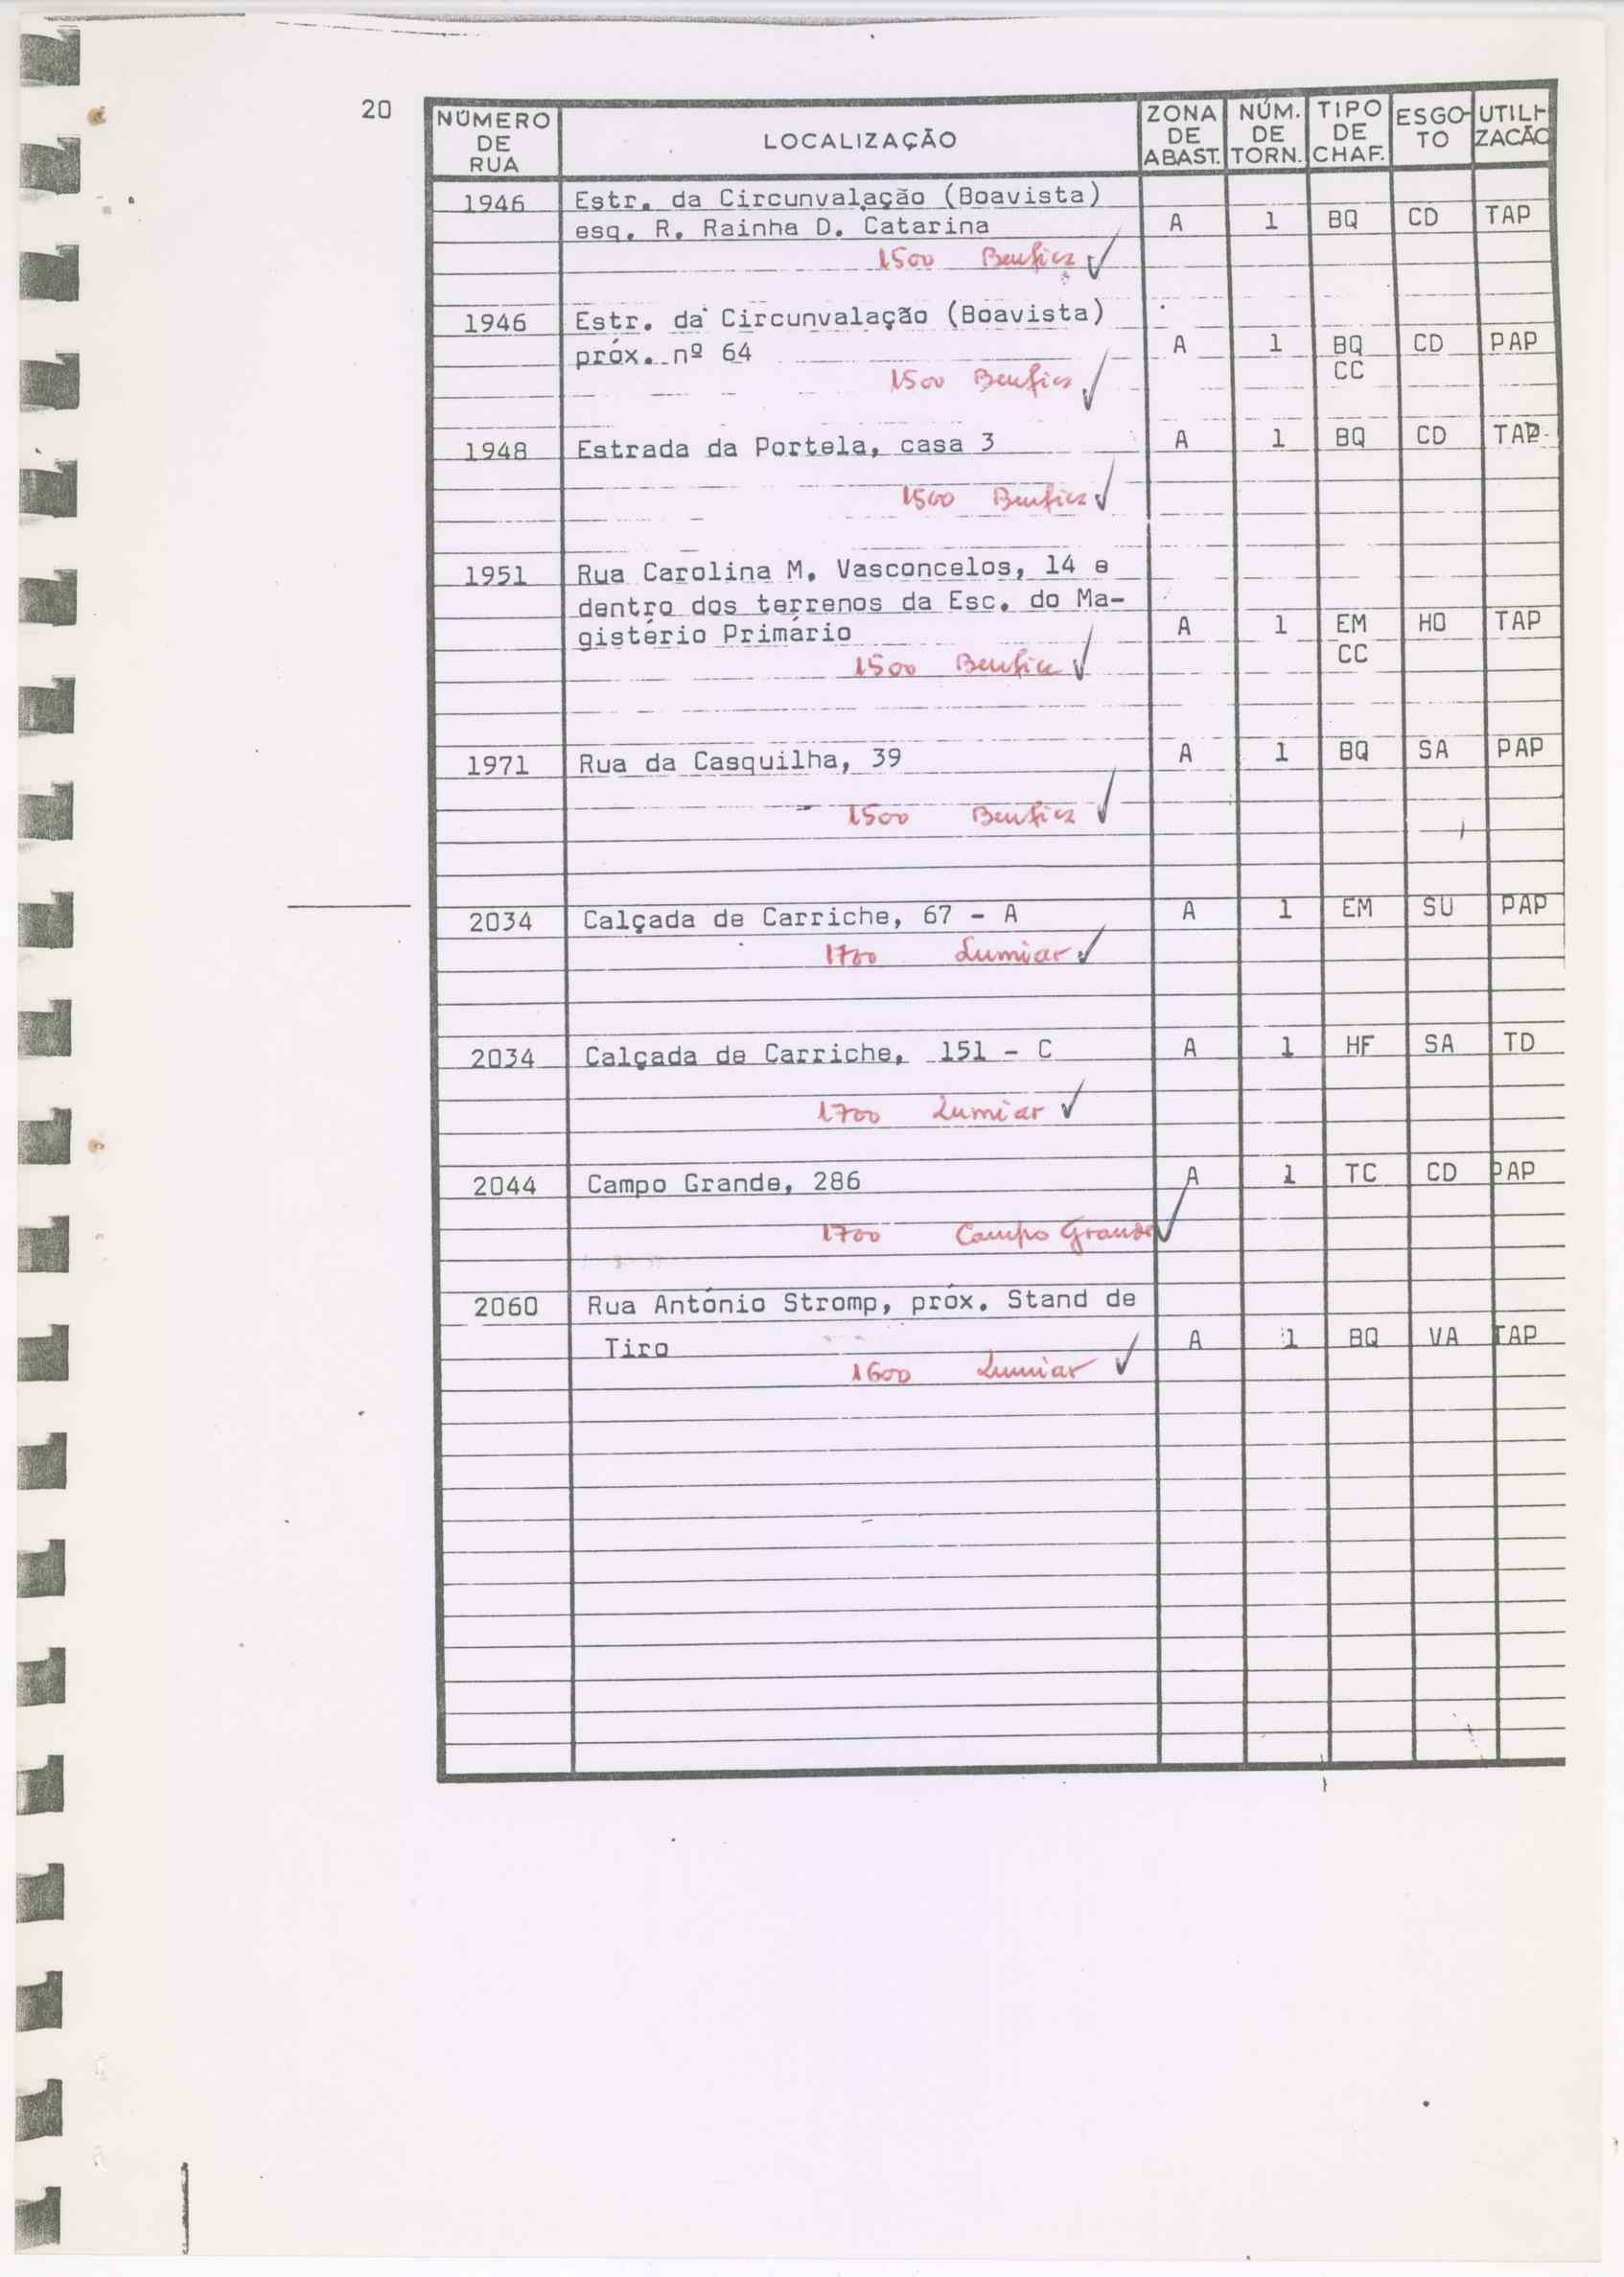 20
NÚMERO DE RUA LOCALIZAÇÃO ZONA DE ABAST. NÚM. DE TORN. TIPO DE CHAF. ESGO-TO UTILI-ZACÃO
1946 Estr. da Circunvalação (Boavista)
esq. R. Rainha D. Catarina A 1 BQ CD TAP
1500 Benfica ✓
1946 Estr. da Circunvalação (Boavista)
próx. nº 64 A 1 BQ CD PAP
CC
1500 Benfica ✓
1948 Estrada da Portela, casa 3 A 1 BQ CD TAP
1500 Benfica ✓
1951 Rua Carolina M. Vasconcelos, 14 e
dentro dos terrenos da Esc. do Ma-
gistério Primário A 1 EM HO TAP
CC
1500 Benfica ✓
1971 Rua da Casquilha, 39 A 1 BQ SA PAP
1500 Benfica ✓
2034 Calçada de Carriche, 67 - A A 1 EM SU PAP
1700 Lumiar ✓
2034 Calçada de Carriche, 151 - C A 1 HF SA TD
1700 Lumiar ✓
2044 Campo Grande, 286 A 1 TC CD PAP
1700 Campo Grande ✓
2060 Rua António Stromp, próx. Stand de
Tiro A 1 BQ VA TAP
1600 Lumiar ✓